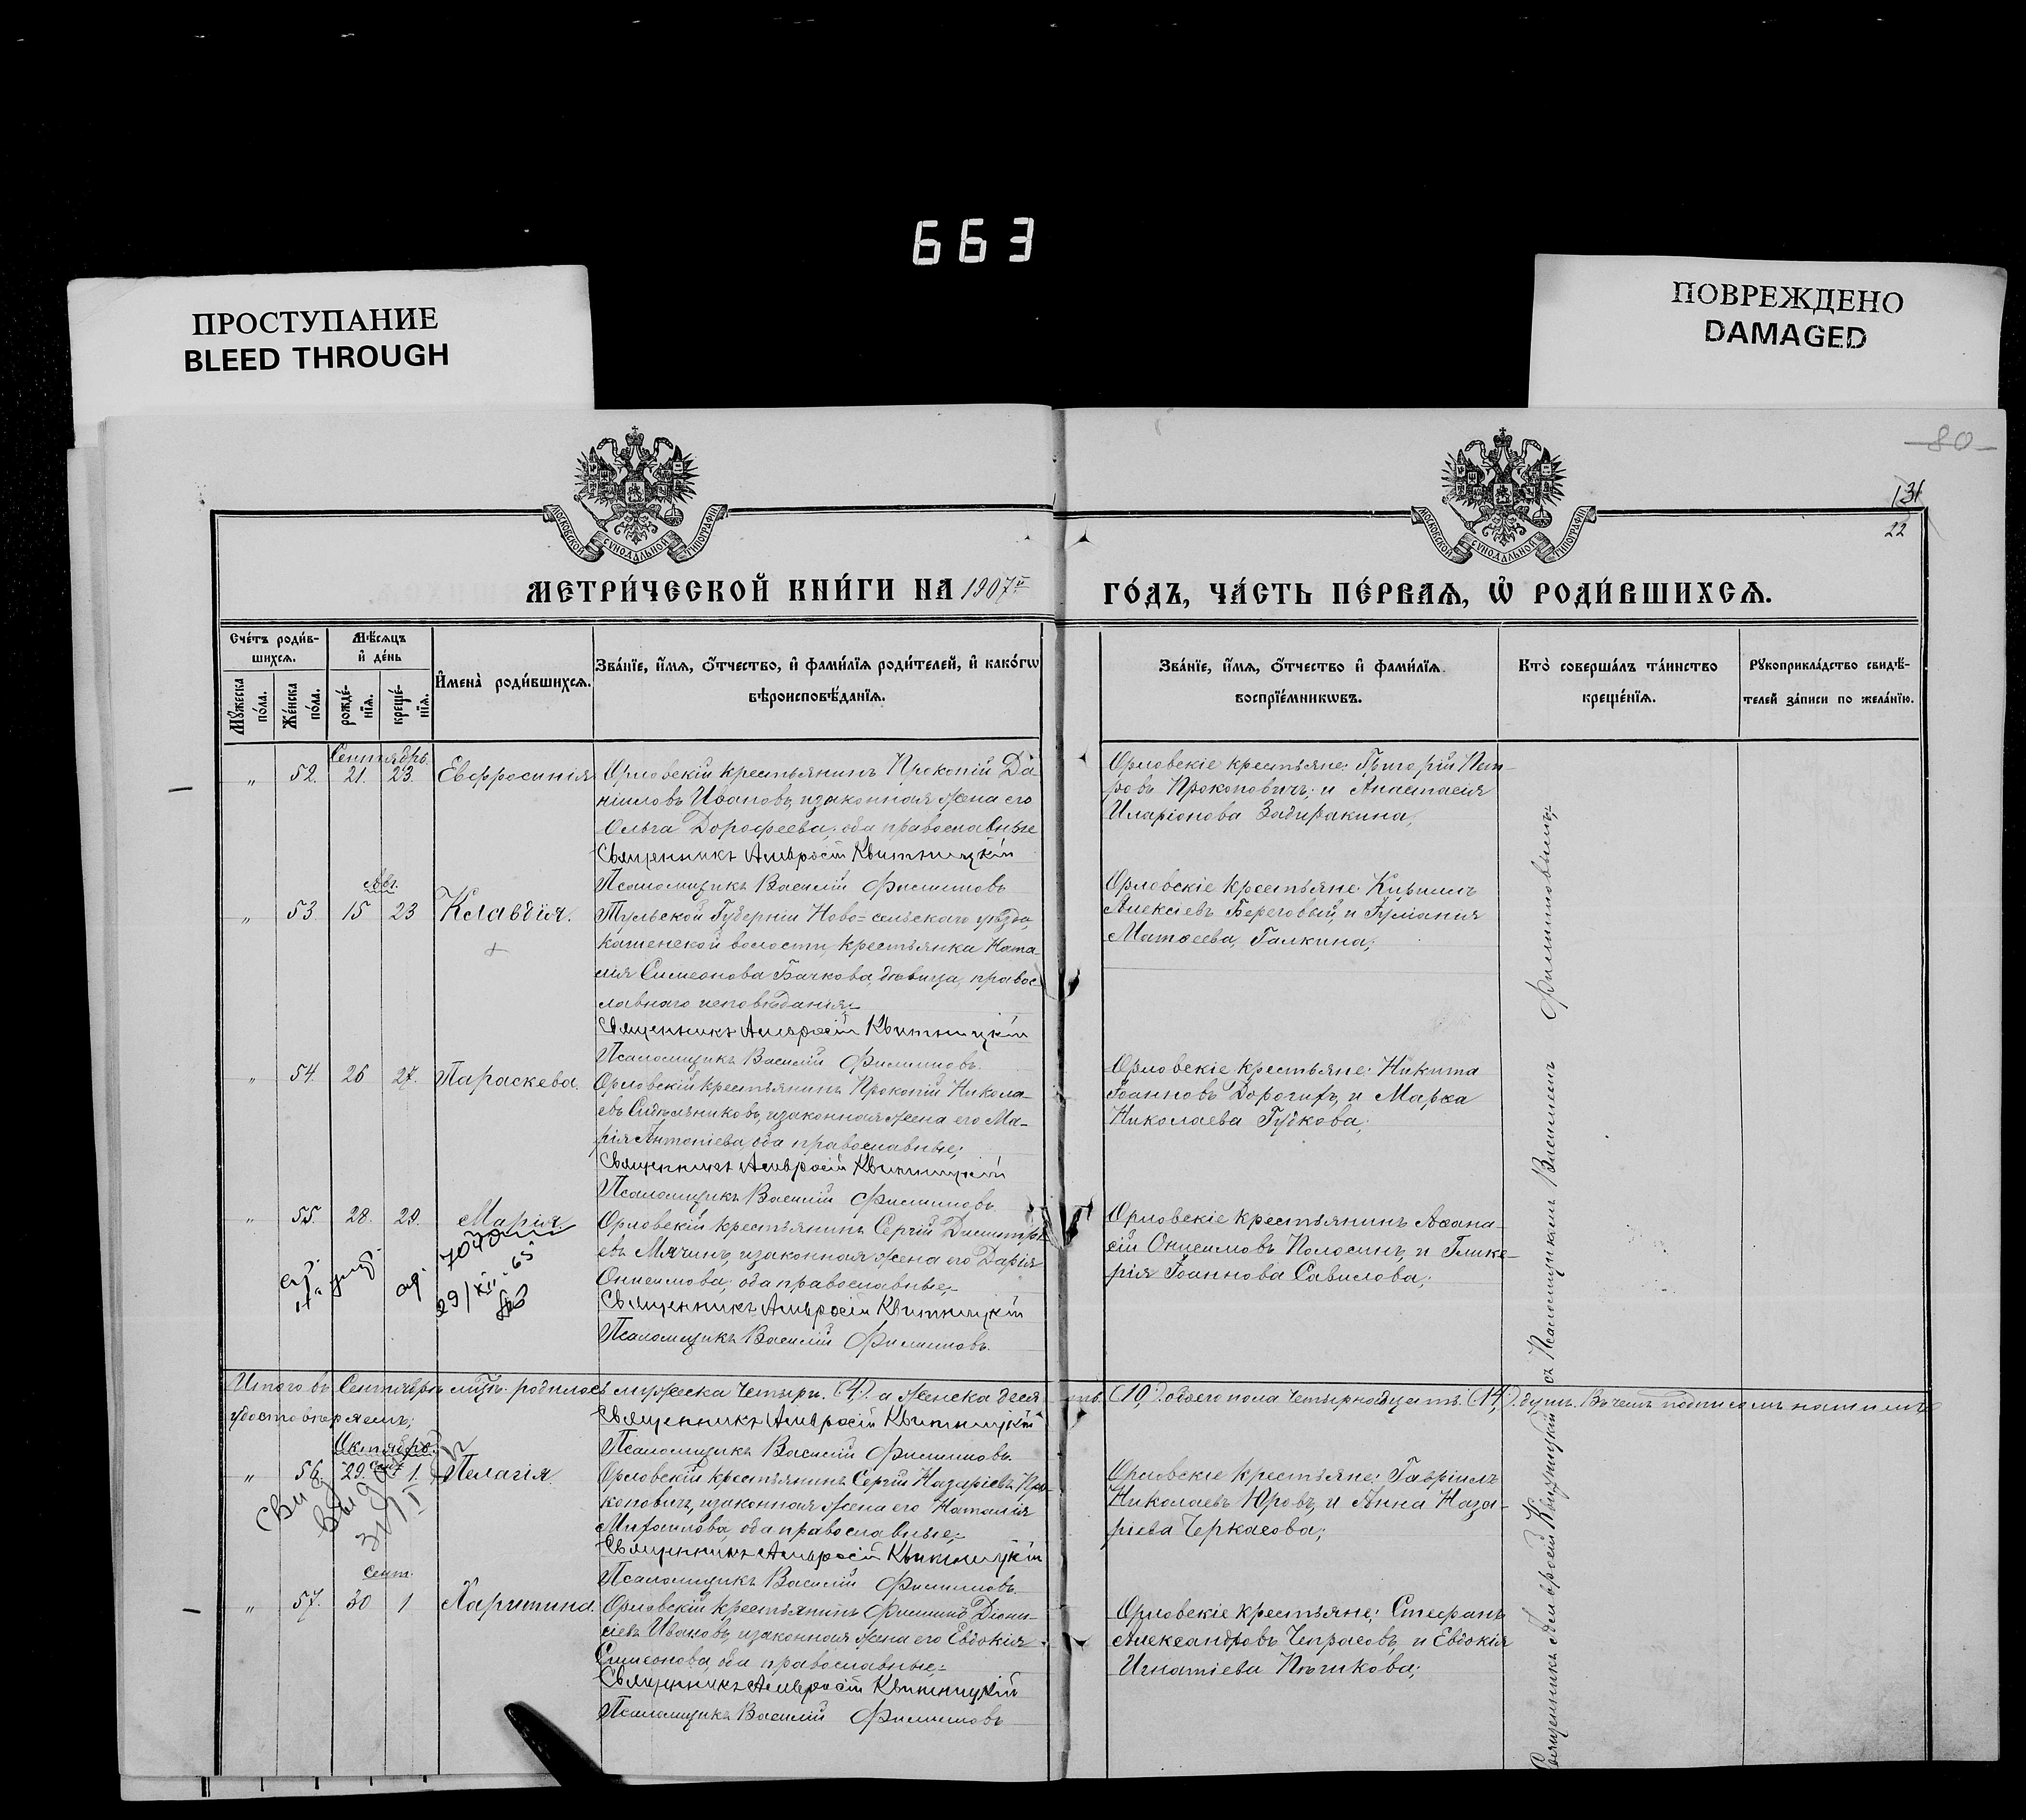 663
ПРОСТУПАНИЕ
BLEED THROUGH
ПОВРЕЖДЕНО
DAMAGED
80
131
22
МОСКОВСКОЙ СѴНОДАЛЬНОЙ ТИПОГРАФІИ
МОСКОВСКОЙ СѴНОДАЛЬНОЙ ТИПОГРАФІИ
МЕТРИ́ЧЕСКОЙ КНИ́ГИ НА 1907й ГО́ДЪ, ЧА́СТЬ ПЕ́РВАѦ, Ѡ҆ РОДИ́ВШИХСѦ.
Сче́тъ роди́в-
шихсѧ.
Мѣ́сѧцъ
и҆ де́нь
И҆мена̀ роди́вшихсѧ.
Зва́нїе, и҆́мѧ, ѻ҆́тчество, и҆ фами́лїѧ роди́телей, и҆ како́гѡ
вѣроисповѣ́данїѧ.
Зва́нїе, и҆́мѧ, ѻ҆́тчество и҆ фами́лїѧ
воспрїе́мникѡвъ.
Кто̀ соверша́лъ та́инство
креще́нїѧ.
Рꙋкоприкла́дство свидѣ́-
телей за́писи по жела́нїю.
Мꙋ́жеска
по́ла.
Же́нска
по́ла.
рожде́-
нїѧ.
креще́-
нїѧ.
Сентябрь.
" 52. 21. 23. Евфросинія
Орловскій крестьянинъ Прокопій Да-
ніиловъ Ивановъ, и законная жена его
Ольга Дорофеева; оба православные
Священникъ Амвросій Квитницкій
Псаломщикъ Василій Филиповъ
Орловскіе крестьяне: Григорій Пет-
ровъ Прокоповичъ; и Анастасія
Иларіонова Задиракина;
Авг.
" 53 15 23 Клавдія.
Тульской Губерніи Ново-сельскаго уѣзда,
каменской волости, крестьянка Ната-
лія Симеонова Бачкова, дѣвица, правос-
лавнаго исповѣданія;
Священникъ Амвросій Квитницкій
Псаломщикъ Василій Филиповъ.
Орловскіе крестьяне Кириллъ
Алексіевъ Береговый, и Гуліанія
Матѳеева Галкина;
" 54. 26 27. Параскева.
Орловскій крестьянинъ Прокопій Никола-
евъ Сидельниковъ, и законная жена его Ма-
рія Антоніева, оба православные;
Священникъ Амвросій Квитницкій
Псаломщикъ Василій Филиповъ
Орловскіе крестьяне: Никита
Іоанновъ Дорогихъ, и Марѳа
Николаева Гудкова;
" 55. 28. 29. Марія.
7040
29/XII-65
Орловскій крестьянинъ Сергій Димитрі-
евъ Мячинъ, и законная жена его Дарія
Онисимова; оба православные;
Священникъ Амвросій Квитницкій
Псаломщикъ Василій Филиповъ.
Орловскіе крестьянинъ Аѳана-
сій Онисимовъ Полосинъ, и Глике-
рія Іоаннова Савилова;
Итого въ Сентябрѣ мѣцѣ родилось мужеска четыре (4) а женска десять (10) обоего пола четырнадцать (14) душъ. Въ чемъ подписомъ нашимъ
удостовѣряемъ;
Священникъ Амвросій Квитницкій
Псаломщикъ Василій Филиповъ.
Октябрь.
Сент
" 56. 29. 1. Пелагія.
Орловскій крестьянинъ Сергій Назаріевъ Про-
коповичъ, и законная жена его Наталія
Михаилова, оба православные;
Священникъ Амвросій Квитницкій
Псаломщикъ Василій Филиповъ.
Орловскіе крестьяне: Гавріилъ
Николаевъ Юровъ, и Анна Наза-
ріева Черкасова;
Сент.
" 57. 30 1 Харитина.
Орловскій крестьянинъ Филипъ Діони-
сіевъ Ивановъ, и законная жена его Евдокія
Симеонова, оба православные;
Священникъ Амвросій Квитницкій
Псаломщикъ Василій Филиповъ
Орловскіе крестьяне: Стефанъ
Александровъ Чепрасовъ, и Евдокія
Игнатіева Птичкова;
Священникъ Амвросій Квитницкій съ Псаломщикомъ Василіемъ Филиповымъ;